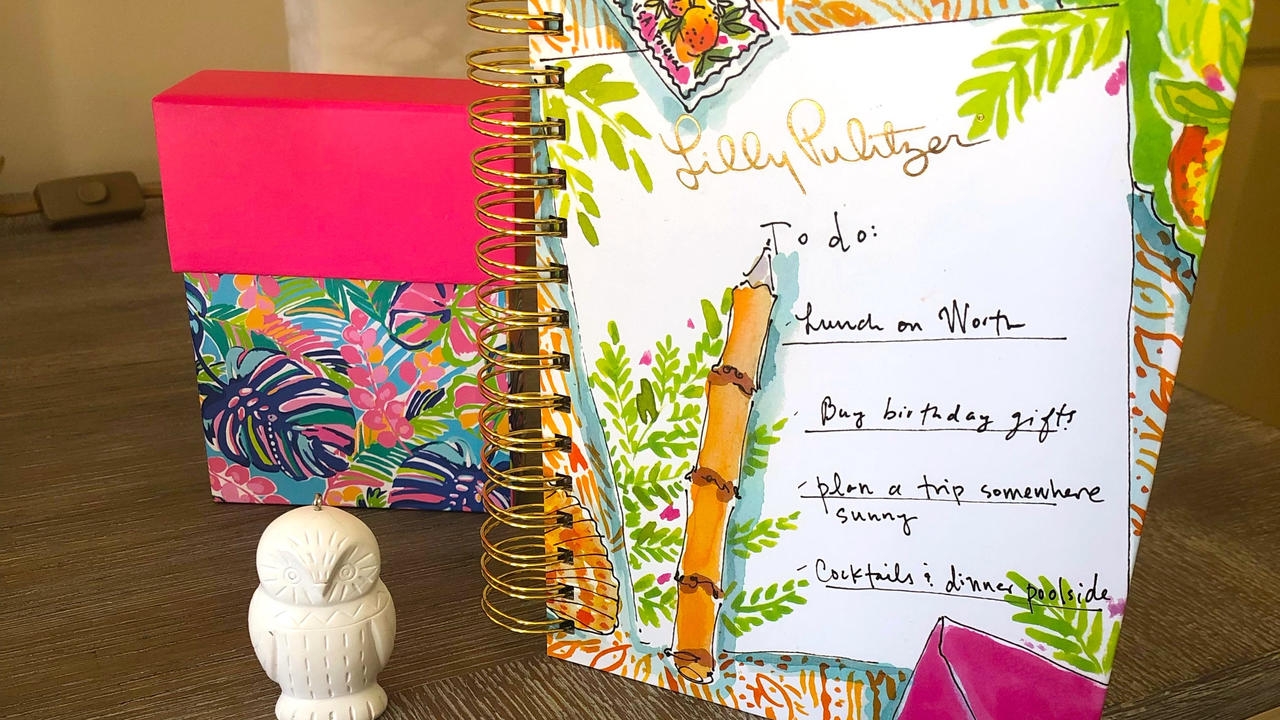 Lilly Pulitzer®
To do:
- Lunch on Worth
- Buy birthday gifts
- plan a trip somewhere
sunny
- Cocktails & dinner poolside